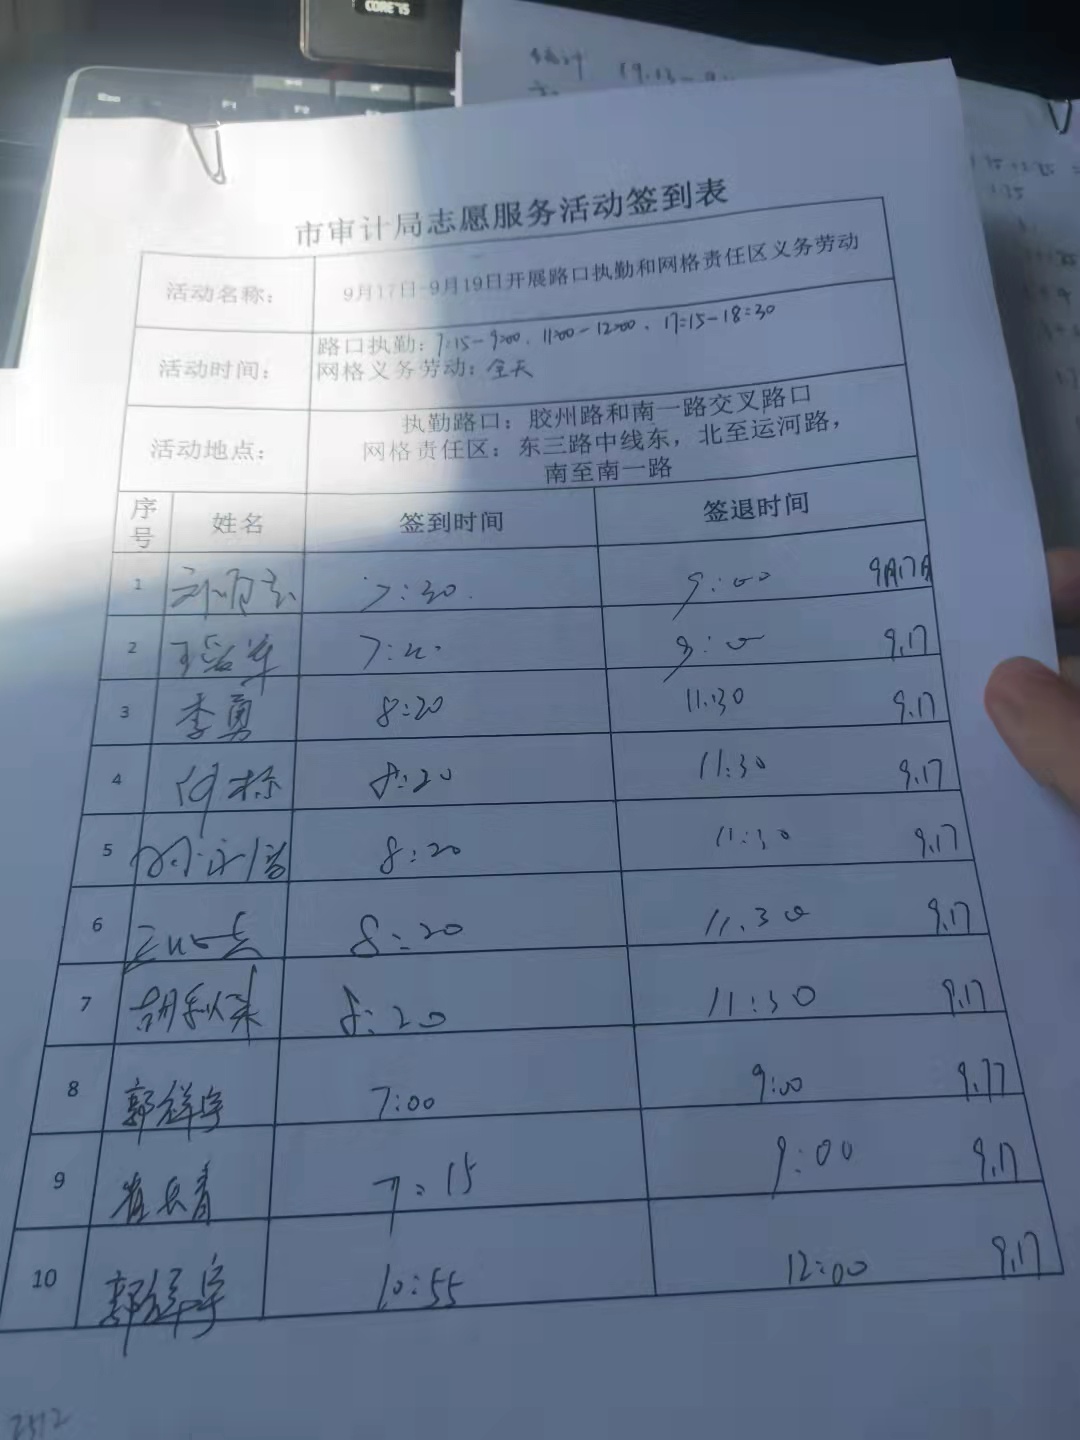 CORE i5
市审计局志愿服务活动签到表
活动名称： 9月17日-9月19日开展路口执勤和网格责任区义务劳动
活动时间： 路口执勤：7:15-9:00、11:00-12:00、17:15-18:30
网格义务劳动：全天
活动地点： 执勤路口：胶州路和南一路交叉路口
网格责任区：东三路中线东，北至运河路，
南至南一路
序号 姓名 签到时间 签退时间
1 7:30 9:00 9月17日
2 9:00 9.17
3 李勇 8:20 11:30 9.17
4 何标 8:20 11:30 9.17
5 8:20 11:30 9.17
6 8:20 11:30 9.17
7 胡秋来 8:20 11:30 9.17
8 郭祥宇 7:00 9:00 9.17
9 崔长青 7:15 9:00 9.17
10 郭祥宇 10:55 12:00 9.17